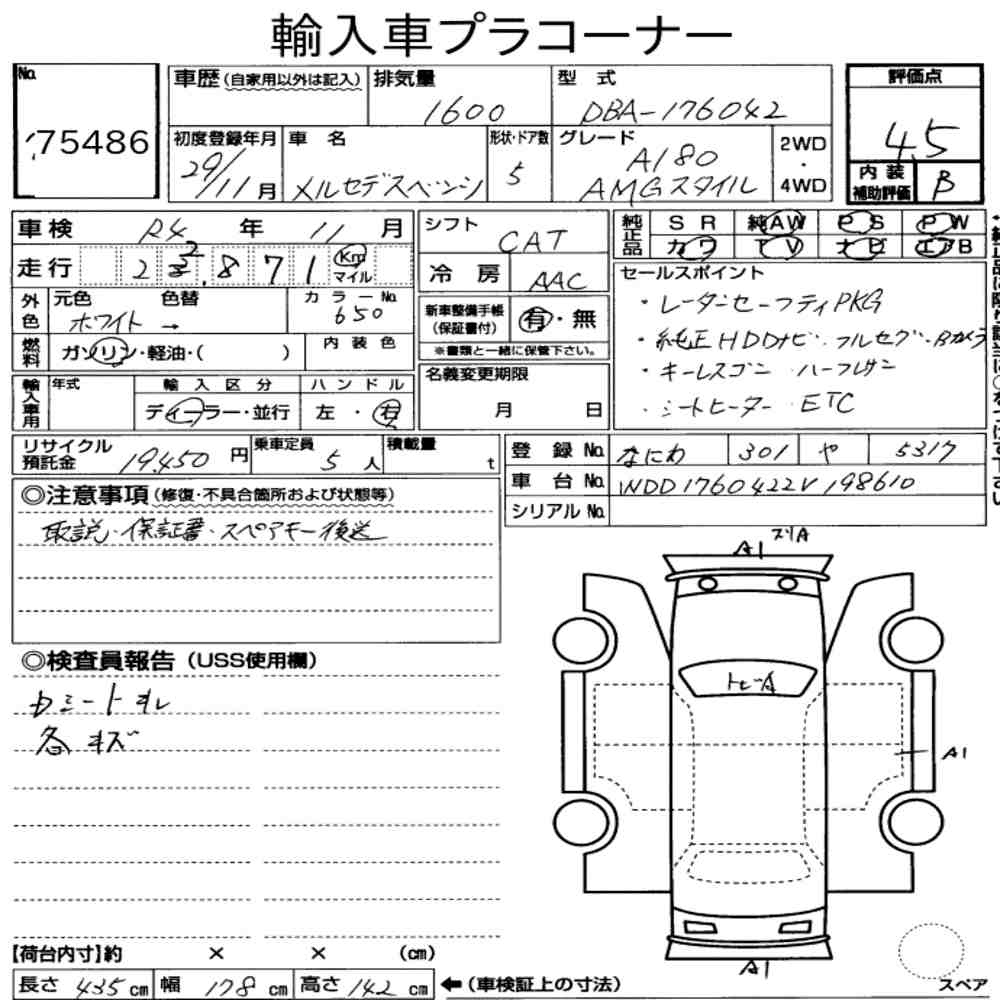 輸入車プラコーナー
No. 75486
車歴(自家用以外は記入) 排気量 1600 型式 DBA-176042
評価点 4.5
初度登録年月 29/11月 車名 メルセデスベンツ 形状・ドア数 5 グレード A180 AMGスタイル 2WD・4WD
内装補助評価 B
車検 R4年 11月 シフト CAT
走行 2 2.871 Km マイル 冷房 AAC
純正品 SR 純AW PS PW
カワ TV ナビ エアB
外色 元色 ホワイト 色替 → カラーNo. 650
新車整備手帳(保証書付) 有・無
※書類と一緒に保管下さい。
燃料 ガソリン・軽油・( ) 内装色
輸入車用 年式 輸入区分 ハンドル
ディーラー・並行 左・右
名義変更期限
月 日
セールスポイント
・レーダーセーフティPKG
・純正HDDナビ・フルセグ・Bカメラ
・キーレスゴー ・ハーフレザー
・シートヒーター・ETC
リサイクル預託金 19,450円 乗車定員 5人 積載量 t
登録No. なにわ 301 や 5317
車台No. WDD1760422V198610
シリアルNo.
◎注意事項(修復・不具合箇所および状態等)
取説・保証書・スペアキー後送
◎検査員報告(USS使用欄)
各キズ
A1 スリA
トビA
A1
A1
【荷台内寸】約 × × (cm)
長さ 435cm 幅 178cm 高さ 142cm ←(車検証上の寸法)
スペア